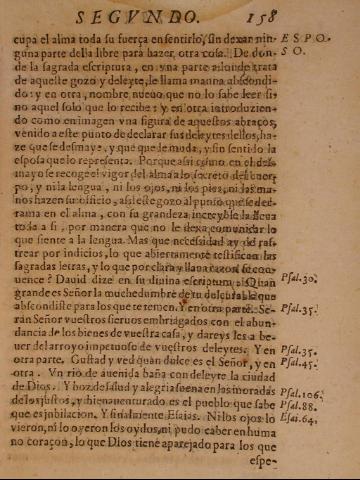 SEGVNDO. 158
cupa el alma toda su fuerça en sentirlo, sin dexar nin- ESPO-
guna parte della libre para hazer otra cosa. De don- SO.
de la sagrada escriptura, en vna parte a donde trata
de aqueste gozo y deleyte, le llama manna abscondi-
do: y en otra, nombre nueuo que no lo sabe leer si-
no aquel solo que lo recibe: y en otra introduzien-
do como en imagen vna figura de aquestos abraços,
venido a este punto de declarar sus deleytes dellos, ha-
ze que se desmaye, y que quede muda, y sin sentido la
esposa que lo representa. Porque assi como en el des-
mayo se recoge el vigor del alma a lo secreto del cuer-
po, y ni la lengua, ni los ojos, ni los pies, ni las ma-
nos hazen su officio, assi este gozo al punto que se de-
rrama en el alma, con su grandeza increyble la lleua
toda a si, por manera que no le dexa comunicar lo
que siente a la lengua. Mas que necessidad ay de ras-
trear por indicios, lo que abiertamente testifican las
sagradas letras, y lo que por clara y llana razon se con-
uence? Dauid dize en su diuina escriptura. Quan Psal.30.
grande es Señor la muchedumbre de tu dulçura la que
abscondiste para los que te temen. Y en otra parte. Se- Psal.35.
rán Señor vuestros sieruos embriagados con el abun-
dancia de los bienes de vuestra casa, y dareys les a be-
uer del arroyo impetuoso de vuestros deleytes. Y en Psal.35.
otra parte. Gustad y ved quan dulce es el Señor, y en Psal.45.
otra. Vn rio de auenida baña con deleyte la ciudad
de Dios. Y boz de salud y alegria suena en las moradas Psal.106.
de los justos, y bienauenturado es el pueblo que sabe Psal.88.
que es jubilacion. Y finalmente Esaias. Ni los ojos lo Esai.64.
vieron, ni lo oyeron los oydos, ni pudo caber en huma
no coraçon, lo que Dios tiene aparejado para los que
espe-